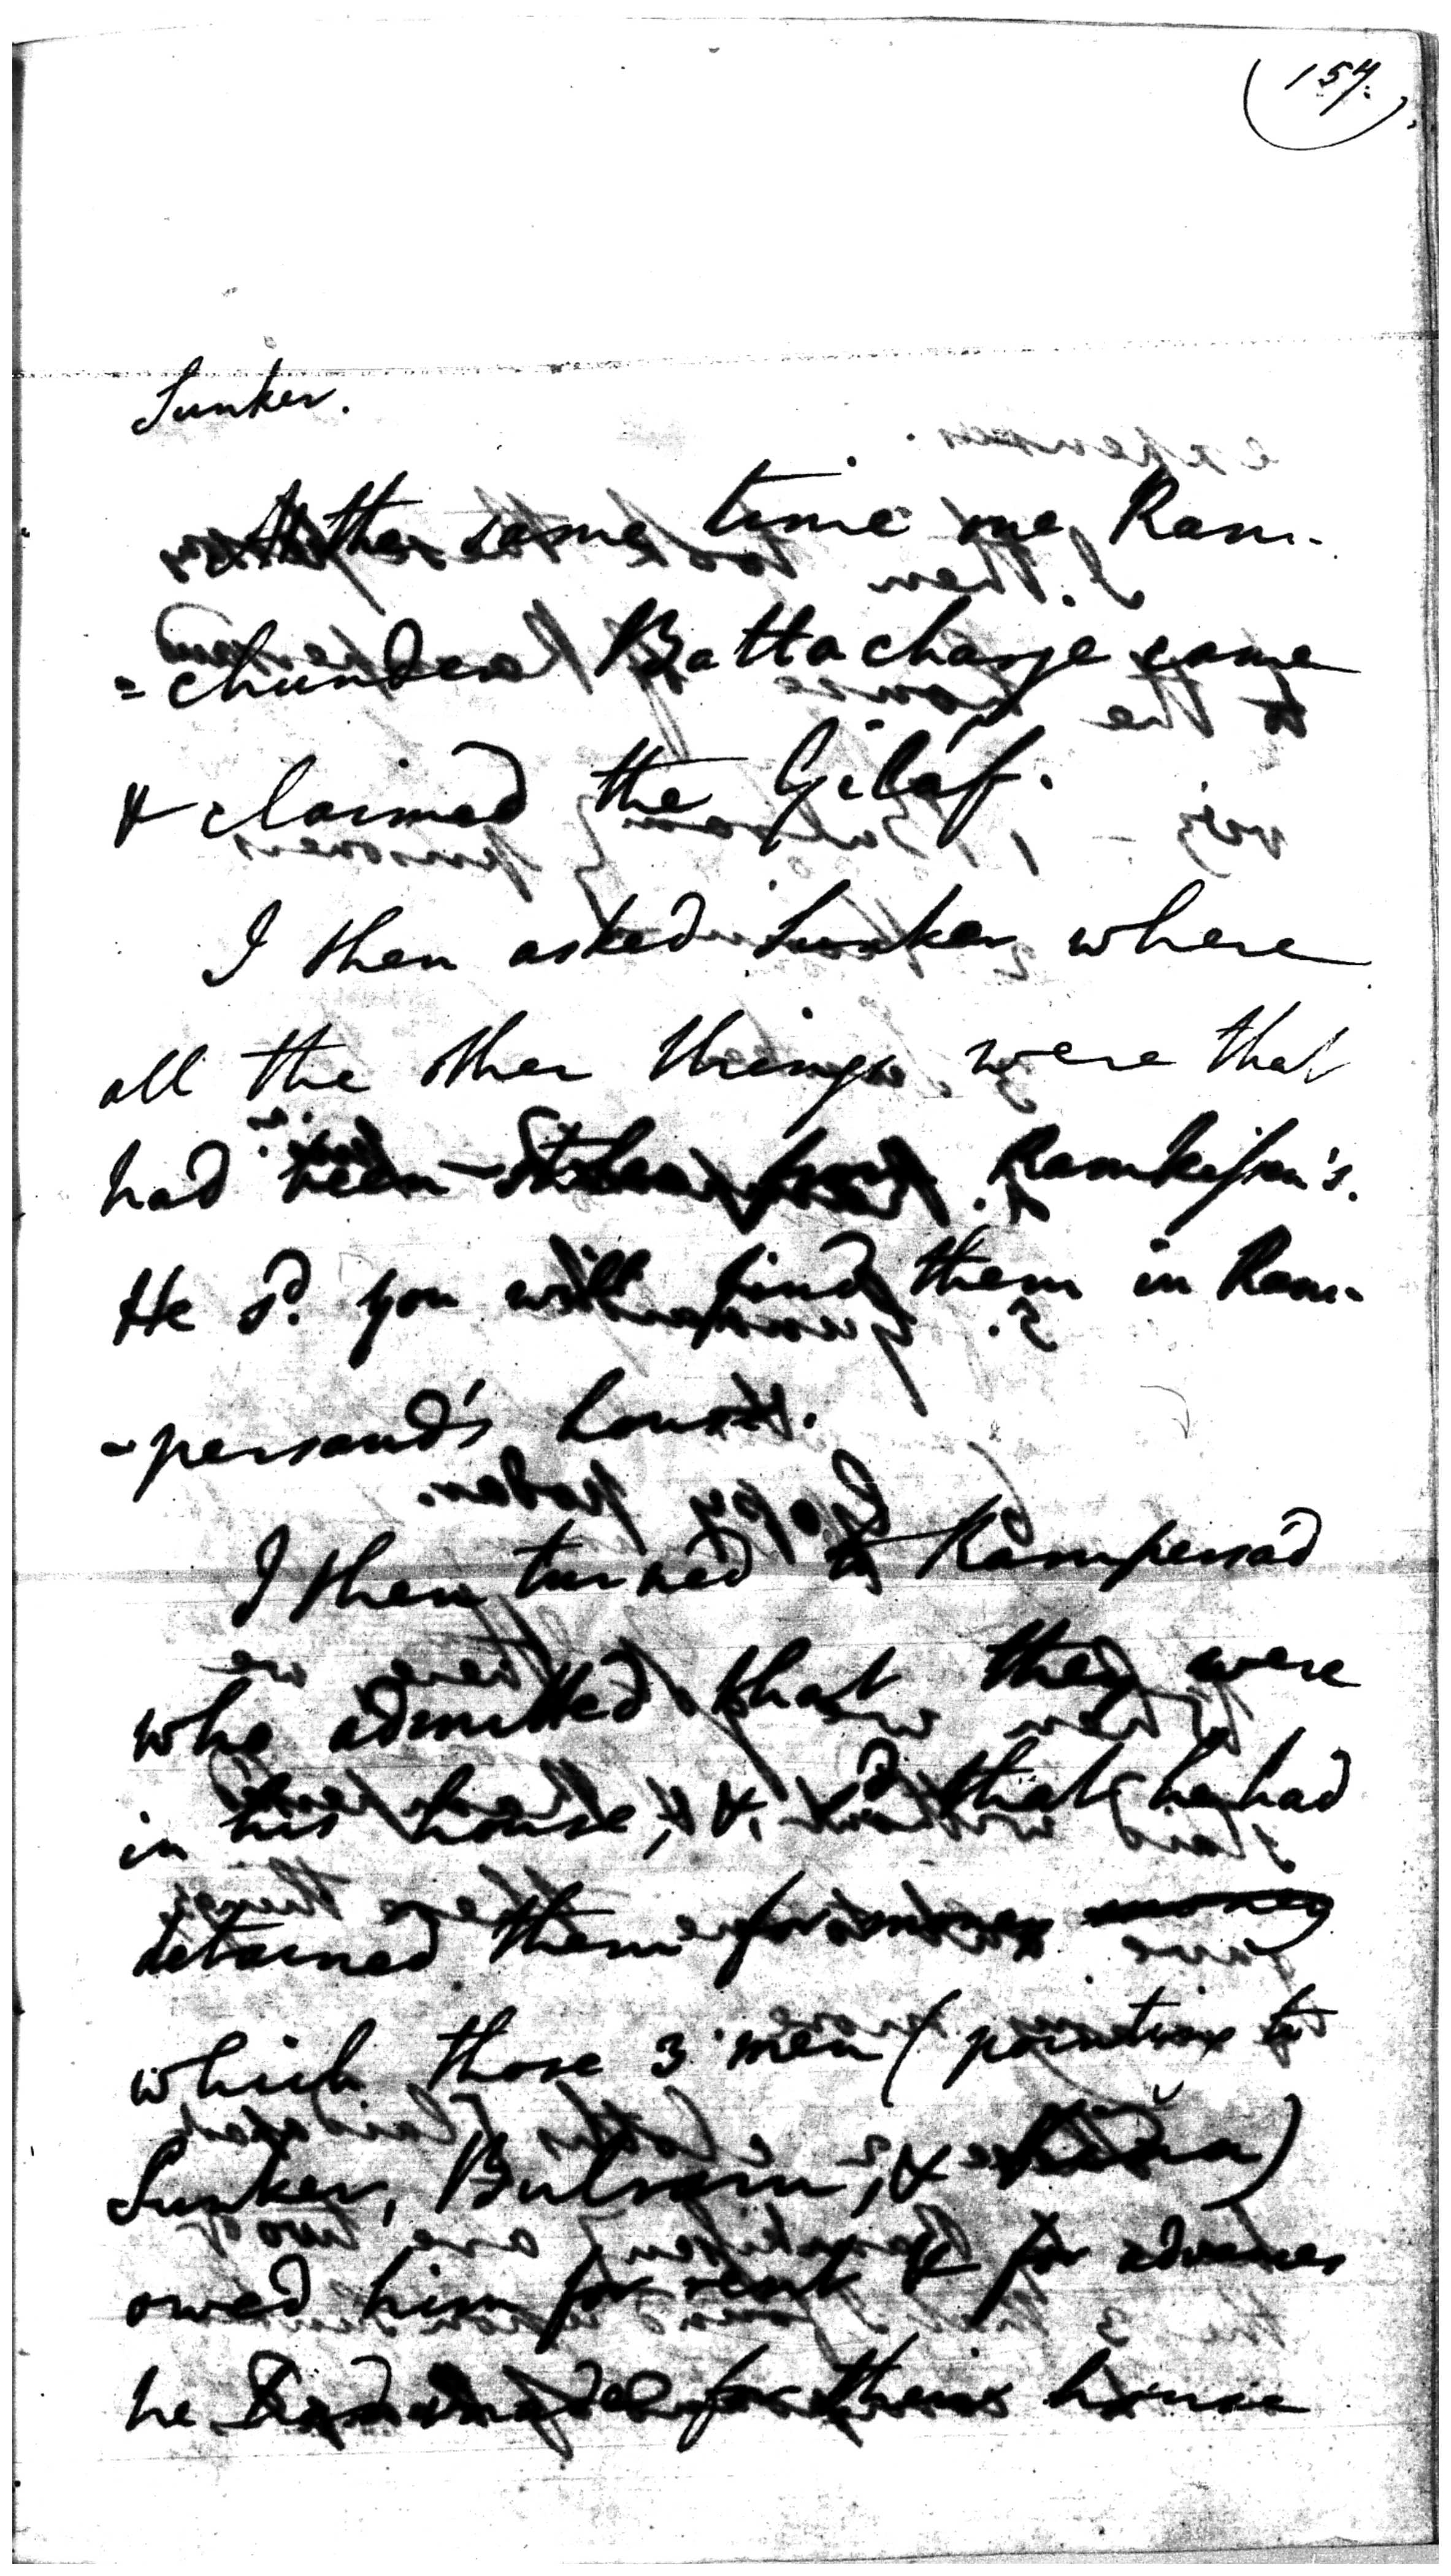 (154.)
Sunker.
At the same time one Ram-
=chunder Battacharge came
& claimed the Gilaf.
I then asked Sunker where
all the other things were that
had been stolen from Ramkissen's.
He sd. you will find them in Ram-
-persaud's house.
I then turned to Rampersad
who admitted that they were
in his house, & sd that he had
detained them for money
which those 3 men (pointing to
Sunker, Bulram, &
owed him for rent & for advances
he had made for their house